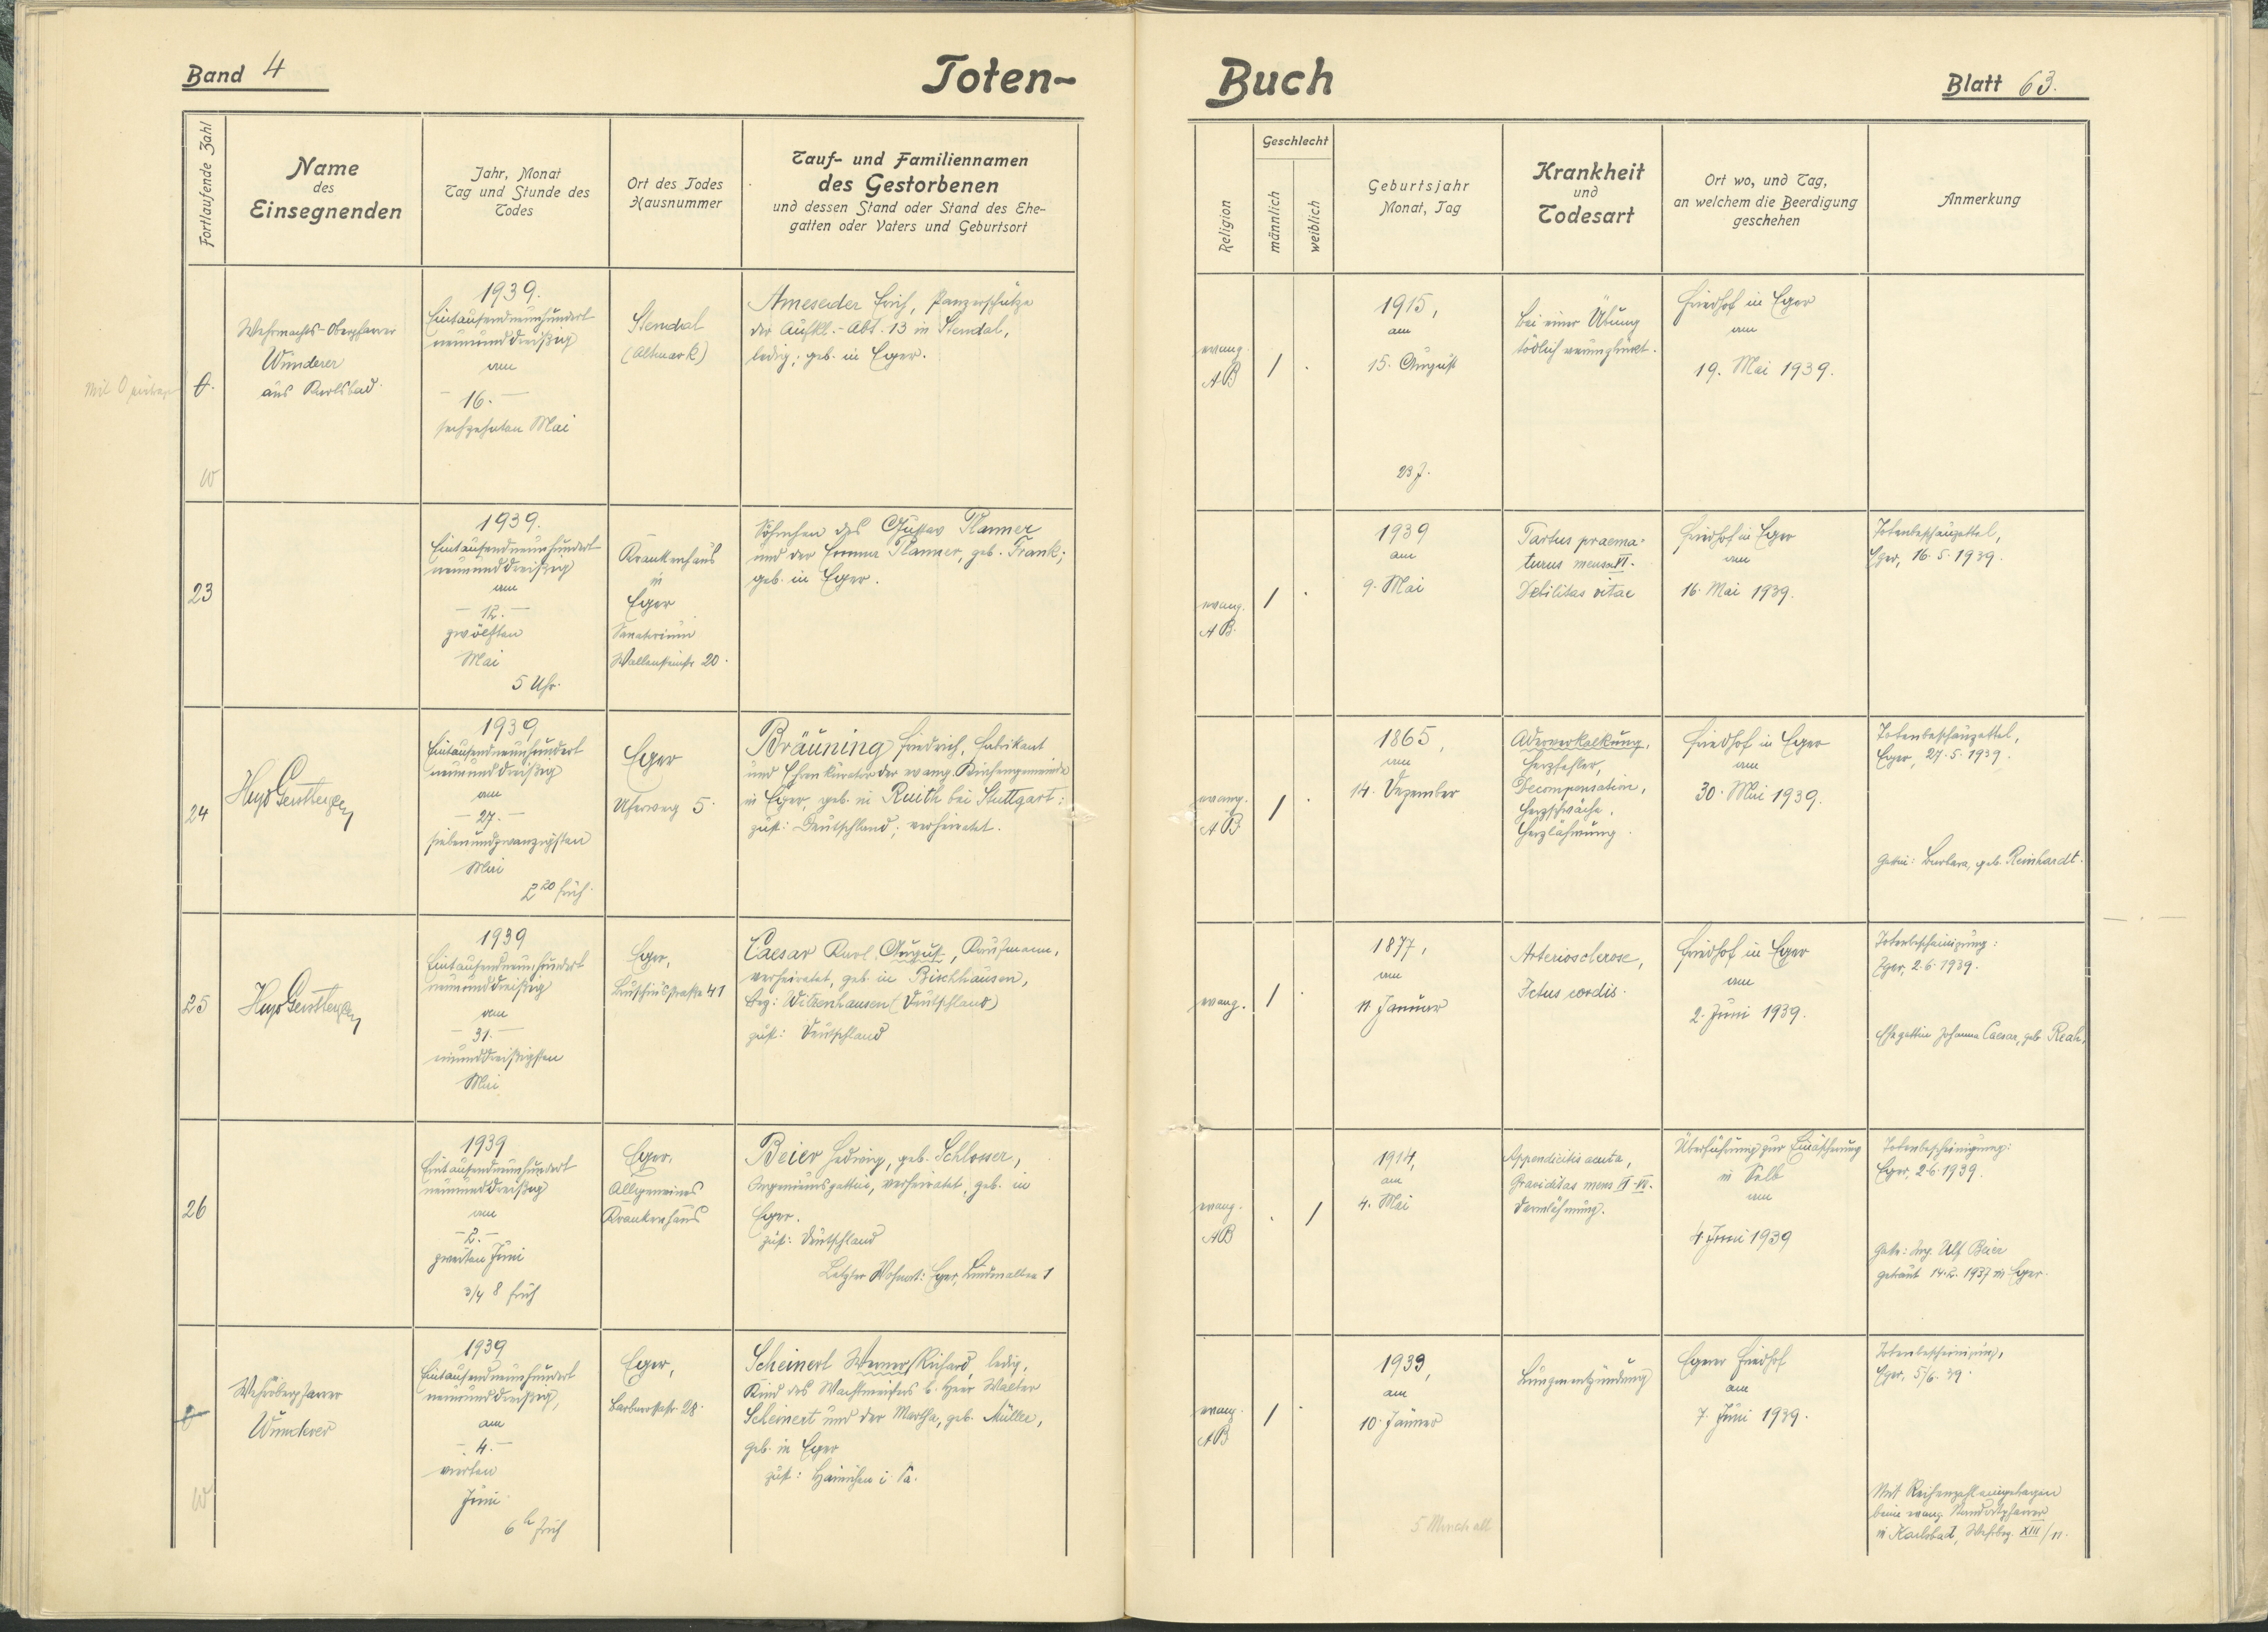 Band 4
Toten-
Buch
Blatt 63.
Fortlaufende Zahl
Name
des
Einsegnenden
Jahr, Monat
Tag und Stunde des
Todes
Ort des Todes
Hausnummer
Tauf- und Familiennamen
des Gestorbenen
und dessen Stand oder Stand des Ehe-
gatten oder Vaters und Geburtsort
Religion
Geschlecht
männlich
weiblich
Geburtsjahr
Monat, Tag
Krankheit
und
Todesart
Ort wo, und Tag,
an welchem die Beerdigung
geschehen
Anmerkung
Mit 0
0.
W
Wehrmachts-Oberpfarrer
Wunderer
aus Karlsbad.
1939.
Eintausendneunhundert
neununddreißig
am
– 16. –
sechzehnten Mai
Stendal
(Altmark)
Ameseder Erich, Panzerschütze
der Aufkl.-Abt. 13 in Stendal,
ledig; geb. in Eger.
evang.
AB
/
.
1915,
am
15. August
23 J.
Bei einer Übung
tödlich verunglückt.
Friedhof in Eger
am
19. Mai 1939.
23
1939.
Eintausendneunhundert
neununddreißig
am
– 12. –
zwölften
Mai
5 Uhr.
Krankenhaus
in
Eger
Sanatorium
Wallensteinstr 20.
Söhnchen des Gustav Planner
und der Emma Planner, geb. Frank;
geb. in Eger.
evang.
AB.
/
.
1939
am
9. Mai
Partus praema-
turus mens. VI.
Debilitas vitae
Friedhof in Eger
am
16. Mai 1939.
Totenbeschauzettel,
Eger, 16. 5. 1939.
24
Hugo Gerstberger
1939
Eintausendneunhundert
neununddreißig
am
– 27. –
siebenundzwanzigsten
Mai
2 20 früh.
Eger
Uferweg 5.
Bräuning Friedrich, Fabrikant
und Ehrenkurator der evang. Kirchengemeinde
in Eger, geb. in Ruith bei Stuttgart;
zust: Deutschland; verheiratet.
evang.
AB
/
.
1865,
am
14. Dezember
Aderverkalkung,
Herzfehler,
Decompensation,
Herzschwäche,
Herzlähmung.
Friedhof in Eger
am
30. Mai 1939.
Totenbeschauzettel,
Eger, 27. 5. 1939.
Gattin: Barbara, geb. Reinhardt.
25
Hugo Gerstberger
1939
Eintausendneunhundert
neununddreißig
am
– 31. –
einunddreißigsten
Mai
Eger,
Caesar Karl August, Kaufmann,
verheiratet, geb. in Bischhausen,
Bez: Witzenhausen (Deutschland)
zust: Deutschland
evang.
/
.
1877,
am
11 Januar
Arteriosclerose,
Ictus cordis.
Friedhof in Eger
am
2. Juni 1939.
Totenbescheinigung:
Eger, 2. 6. 1939.
Ehegattin Johanna Caesar, geb. Reah.
26
1939
Eintausendneunhundert
neununddreißig
am
– 2. –
zweiten Juni
3/4 8 früh
Eger,
Allgemeines
Krankenhaus
Beier Hedwig, geb. Schlosser,
Ingenieursgattin, verheiratet, geb. in
Eger.
zust: Deutschland
Letzter Wohnort: Eger, Lindenallee 1
evang.
AB
.
/
1914,
am
4. Mai
Appendicitis acuta,
Graviditas mens
Darmlähmung.
Überführung zur Einäscherung
in Selb
am
4. Juni 1939
Totenbescheinigung:
Eger, 2. 6. 1939.
Gatte: Ing. Ulf Beier
getraut 14. 2. 1937 in Eger.
W
Wehroberpfarrer
Wunderer
1939
Eintausendneunhundert
neununddreißig,
am
– 4. –
vierten
Juni
6 h früh
Eger,
Barbarastr. 28.
Scheinert Werner Richard, ledig,
Kind des Wachtmeisters b. Heer Walter
Scheinert und der Martha, geb. Müller,
geb. in Eger
zust: Hainichen i. Sa.
evang.
AB
/
.
1939,
am
10. Jänner
5 Monate alt
Lungenentzündung
Egerer Friedhof
am
7. Juni 1939.
Totenbescheinigung,
Eger, 5/6. 39.
Mit Reihenzahl eingetragen
beim evang. Standortpfarrer
in Karlsbad, Wehrbez. XIII/11.